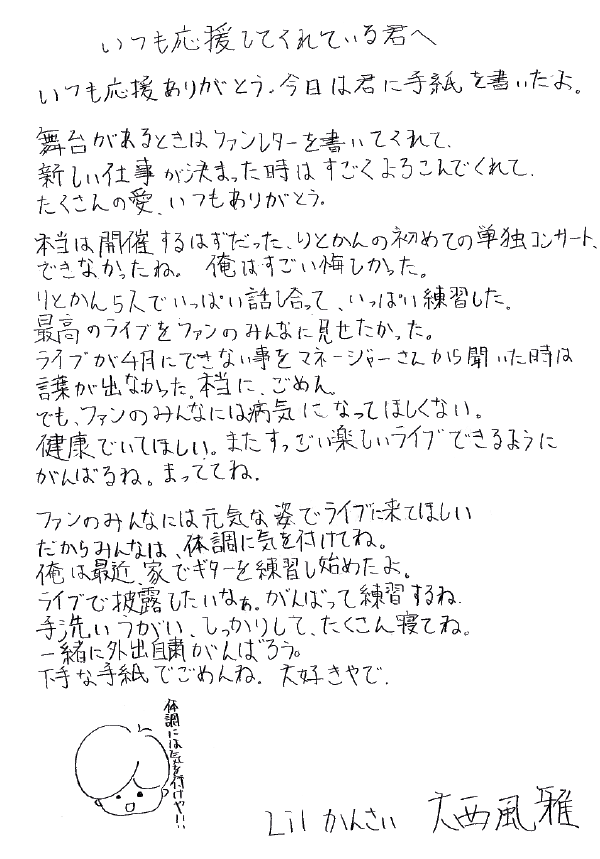 いつも応援してくれている君へ
いつも応援ありがとう。今日は君に手紙を書いたよ。
舞台があるときはファンレターを書いてくれて、
新しい仕事が決まった時はすごくよろこんでくれて、
たくさんの愛、いつもありがとう。
本当は開催するはずだった、りとかんの初めての単独コンサート、
できなかったね。 俺はすごい悔しかった。
りとかん5人でいっぱい話し合って、いっぱい練習した。
最高のライブをファンのみんなに見せたかった。
ライブが4月にできない事をマネージャーさんから聞いた時は
言葉が出なかった。本当に、ごめん。
でも、ファンのみんなには病気になってほしくない。
健康でいてほしい。またすっごい楽しいライブできるように
がんばるね。まっててね。
ファンのみんなには元気な姿でライブに来てほしい
だからみんなは、体調に気を付けてね。
俺は最近、家でギターを練習し始めたよ。
ライブで披露したいなぁ。がんばって練習するね。
手洗いうがい、しっかりして、たくさん寝てね。
一緒に外出自粛がんばろう。
下手な手紙でごめんね。大好きやで。
体調には気を付けや!!
Lil かんさい 大西風雅